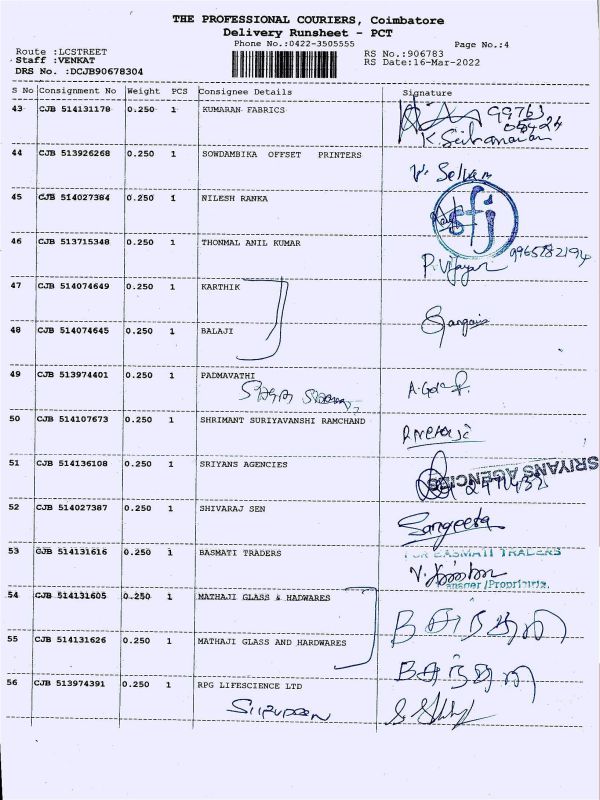 THE PROFESSIONAL COURIERS, Coimbatore
Delivery Runsheet - PCT
Phone No.:0422-3505555
Page No.:4
Route :LCSTREET
Staff :VENKAT
DRS No. :DCJB90678304
RS No.:906783
RS Date:16-Mar-2022
S No Consignment No Weight PCS Consignee Details Signature
43 CJB 514131178 0.250 1 KUMARAN FABRICS
44 CJB 513926268 0.250 1 SOWDAMBIKA OFFSET PRINTERS V. Selvam
45 CJB 514027384 0.250 1 NILESH RANKA sfj
46 CJB 513715348 0.250 1 THONMAL ANIL KUMAR P. Vijayan 9965782194
47 CJB 514074649 0.250 1 KARTHIK
48 CJB 514074645 0.250 1 BALAJI
49 CJB 513974401 0.250 1 PADMAVATHI
50 CJB 514107673 0.250 1 SHRIMANT SURIYAVANSHI RAMCHAND
51 CJB 514136108 0.250 1 SRIYANS AGENCIES SRIYANS AGENCIES
52 CJB 514027387 0.250 1 SHIVARAJ SEN Sangeeta
53 CJB 514131616 0.250 1 BASMATI TRADERS FOR BASMATI TRADERS
54 CJB 514131605 0.250 1 MATHAJI GLASS & HADWARES
55 CJB 514131626 0.250 1 MATHAJI GLASS AND HARDWARES
56 CJB 513974391 0.250 1 RPG LIFESCIENCE LTD